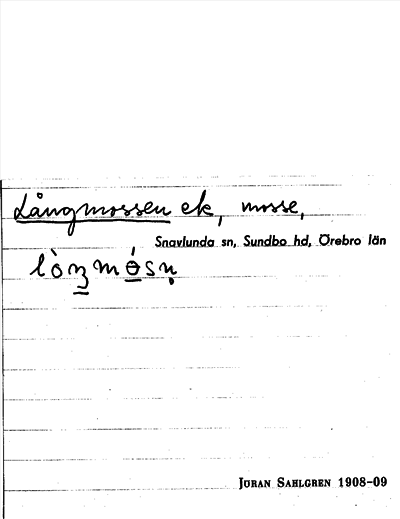 Långmossen ek, mosse,
Snavlunda sn, Sundbo hd, Örebro län
JÖRAN SAHLGREN 1908–09